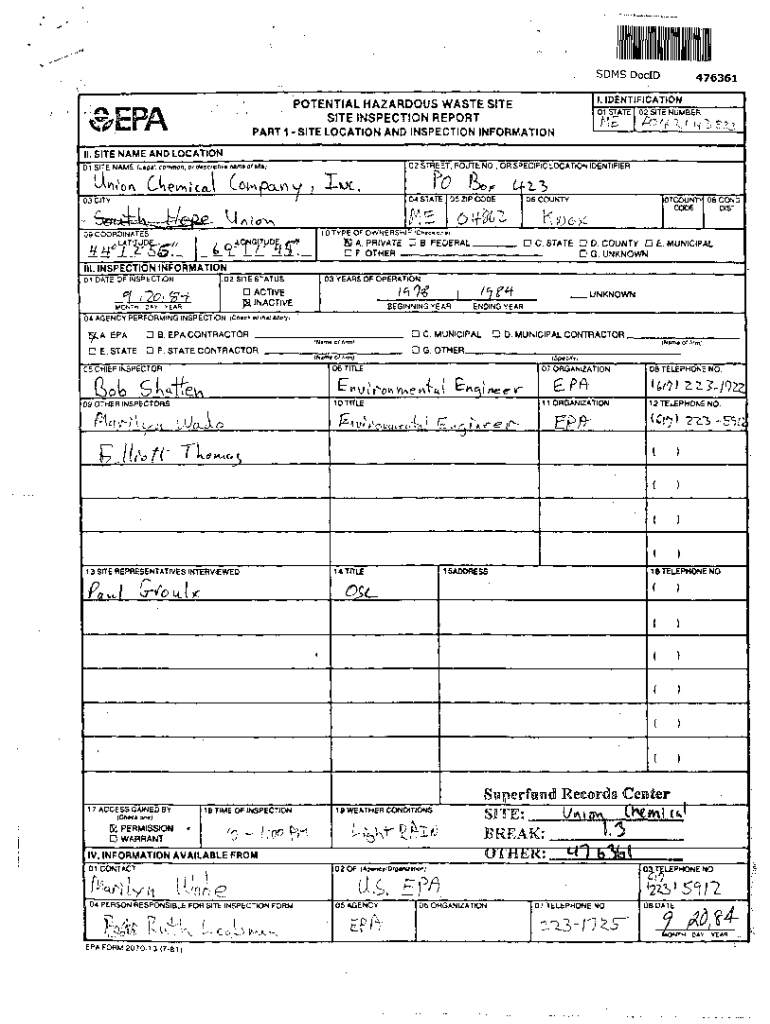 SDMS DocID 476361
EPA
POTENTIAL HAZARDOUS WASTE SITE
SITE INSPECTION REPORT
PART 1 - SITE LOCATION AND INSPECTION INFORMATION
I. IDENTIFICATION
01 STATE 02 SITE NUMBER
ME
II. SITE NAME AND LOCATION
01 SITE NAME (Legal, common, or descriptive name of site)
02 STREET, ROUTE NO., OR SPECIFIC LOCATION IDENTIFIER
Union Chemical Company, Inc.
PO Box 423
03 CITY
04 STATE 05 ZIP CODE 06 COUNTY 07 COUNTY CODE 08 CONG DIST
South Hope Union
ME 04862 Knox
09 COORDINATES
LATITUDE LONGITUDE
10 TYPE OF OWNERSHIP (Check one)
A. PRIVATE B. FEDERAL C. STATE D. COUNTY E. MUNICIPAL
F. OTHER G. UNKNOWN
III. INSPECTION INFORMATION
01 DATE OF INSPECTION
9 20 84
MONTH DAY YEAR
02 SITE STATUS
ACTIVE
INACTIVE
03 YEARS OF OPERATION
1978 1984
BEGINNING YEAR ENDING YEAR
UNKNOWN
04 AGENCY PERFORMING INSPECTION (Check all that apply)
A. EPA B. EPA CONTRACTOR C. MUNICIPAL D. MUNICIPAL CONTRACTOR
(Name of firm) (Name of firm)
E. STATE F. STATE CONTRACTOR G. OTHER
(Name of firm) (Specify)
05 CHIEF INSPECTOR 06 TITLE 07 ORGANIZATION 08 TELEPHONE NO.
Bob Shatten Environmental Engineer EPA (617) 223-1722
09 OTHER INSPECTORS 10 TITLE 11 ORGANIZATION 12 TELEPHONE NO.
Marilyn Wade Environmental Engineer EPA (617) 223-5912
Elliott Thomas ( )
( )
( )
( )
13 SITE REPRESENTATIVES INTERVIEWED 14 TITLE 15 ADDRESS 16 TELEPHONE NO
Paul Groulx OSC ( )
( )
( )
( )
( )
( )
17 ACCESS GAINED BY
(Check one)
PERMISSION
WARRANT
18 TIME OF INSPECTION
1:00 PM
19 WEATHER CONDITIONS
Light RAIN
Superfund Records Center
SITE: Union Chemical
BREAK: 1.3
OTHER: 476361
IV. INFORMATION AVAILABLE FROM
01 CONTACT 02 OF (Agency/Organization) 03 TELEPHONE NO
Marilyn Wade U.S. EPA 223 5912
04 PERSON RESPONSIBLE FOR SITE INSPECTION FORM 05 AGENCY 06 ORGANIZATION 07 TELEPHONE NO 08 DATE
Ruth EPA 223-1725 9 20 84
MONTH DAY YEAR
EPA FORM 2070-13 (7-81)